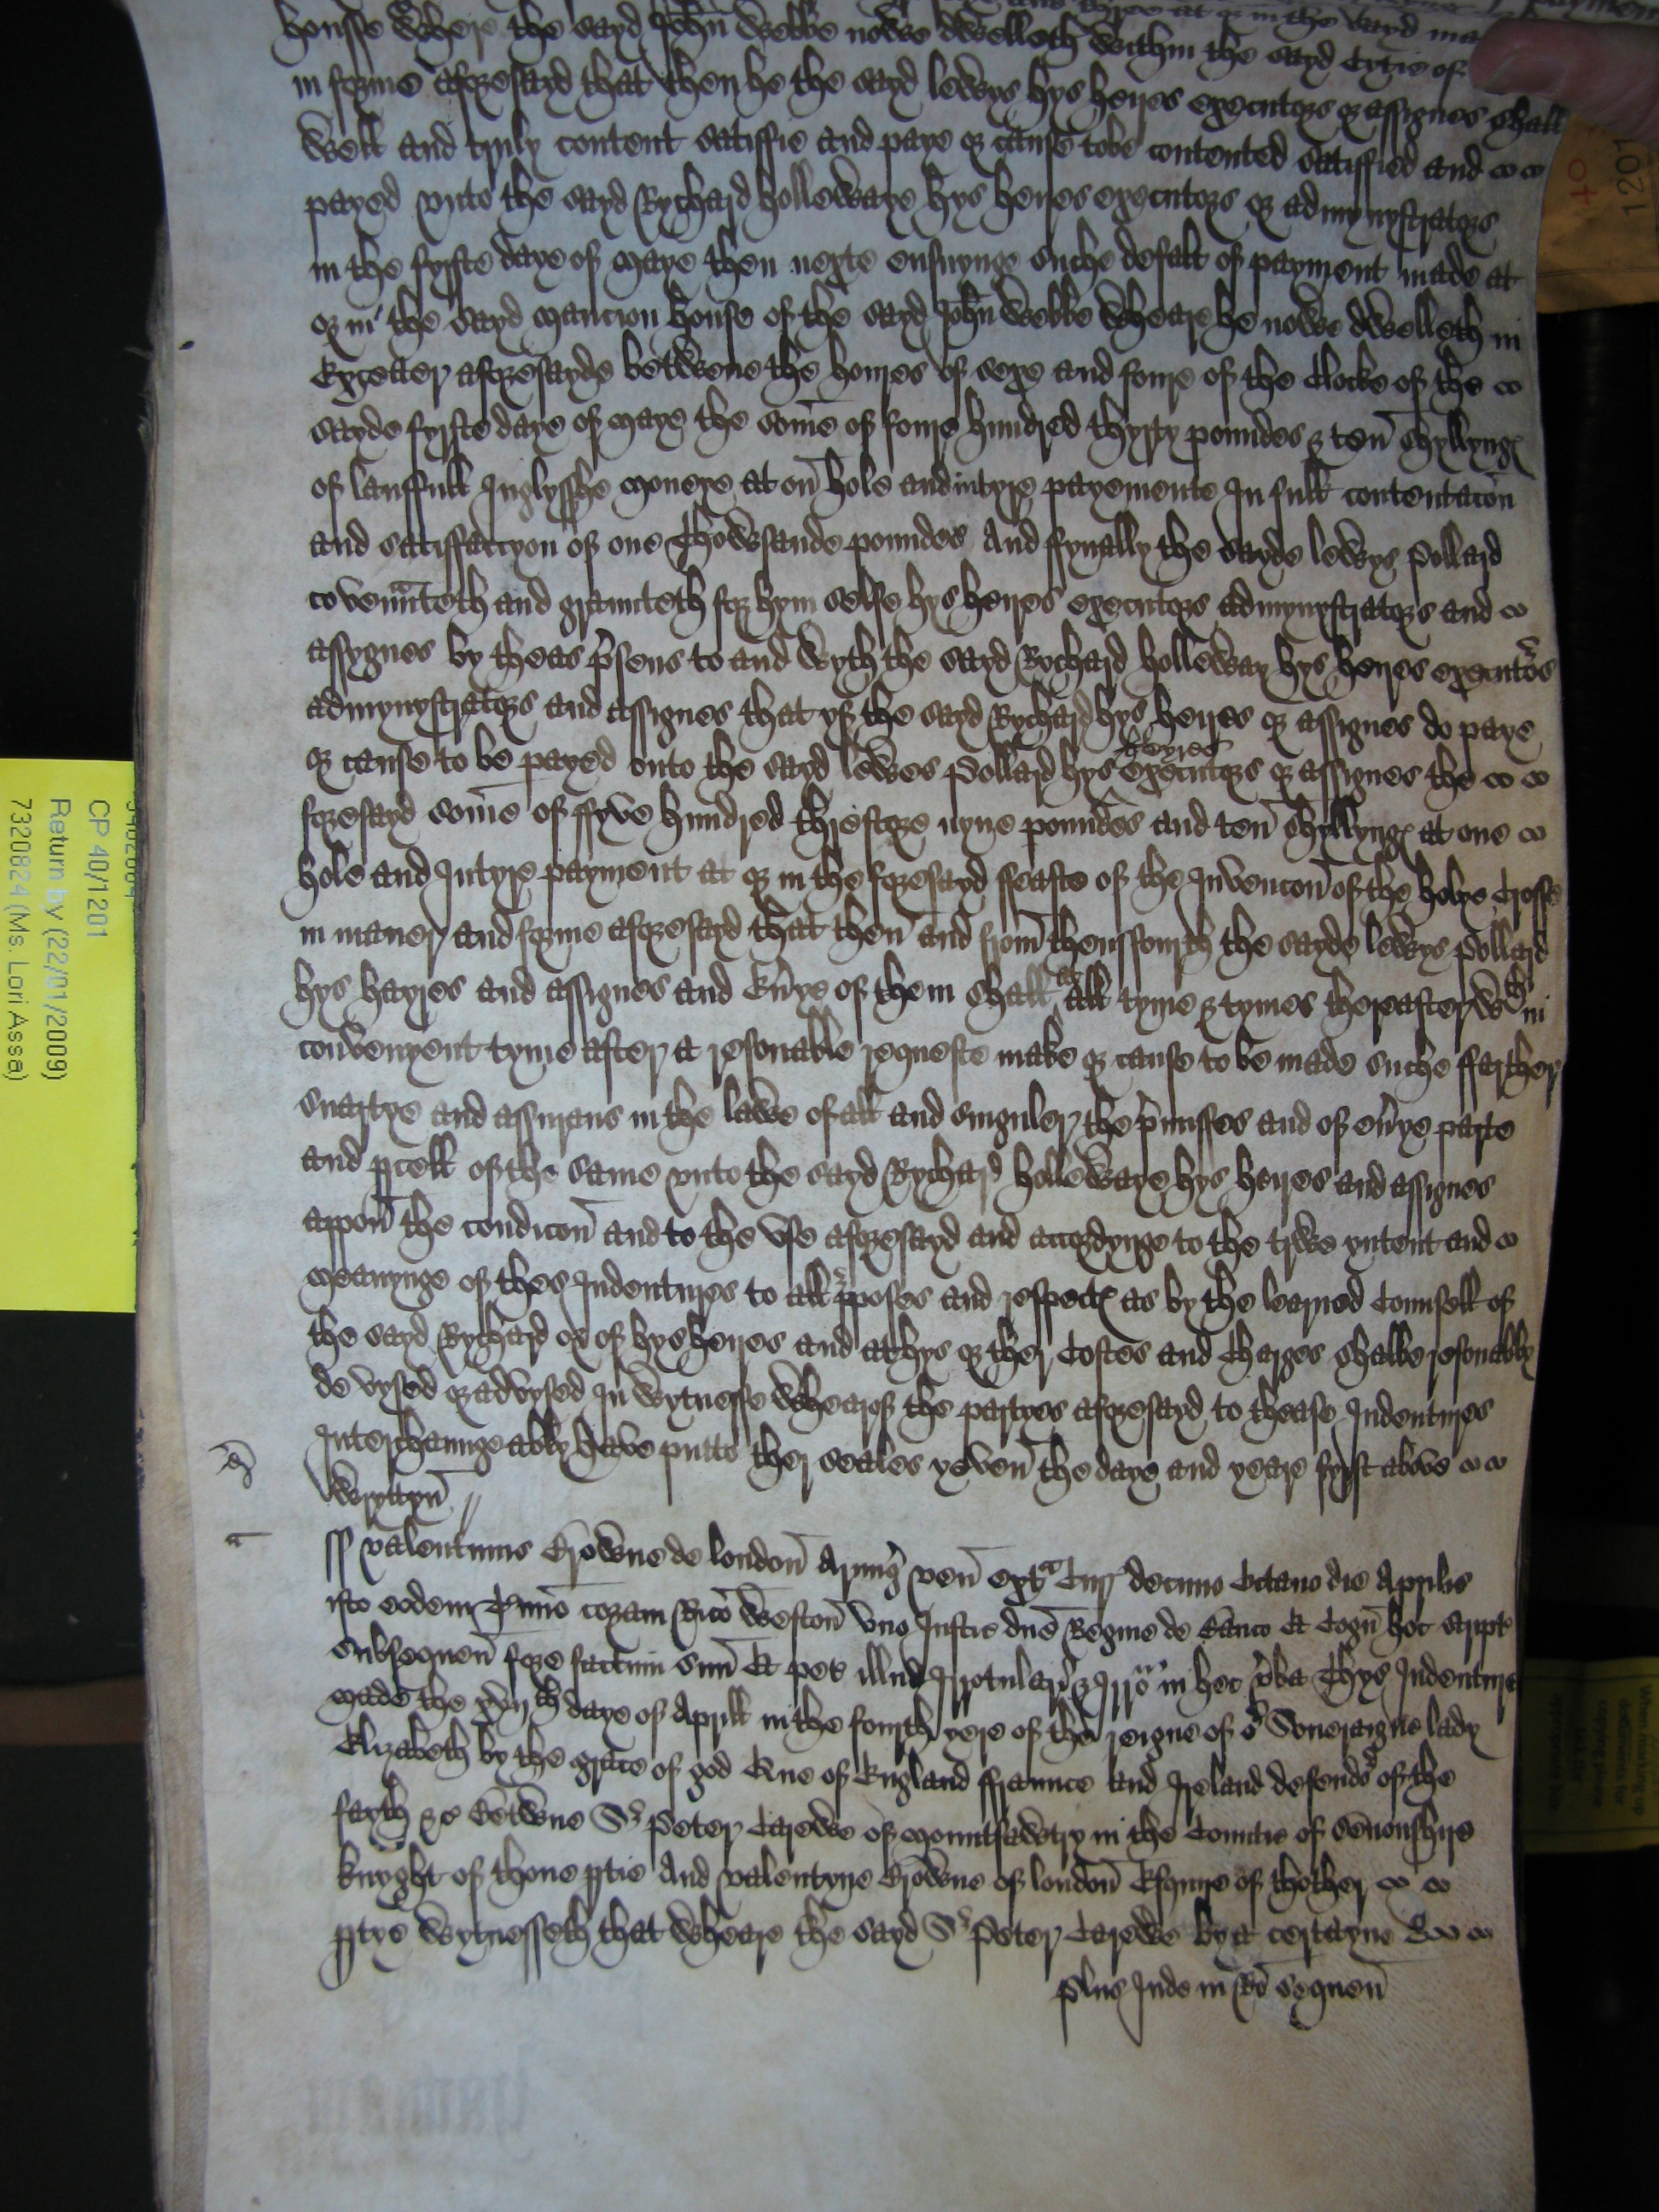 housse where the sayd John Webbe nowe dwelleth within the sayd Cytie of
in forme aforesayd that then he the sayd lewys hys heyres executors or assignes shall
well and truly content satisfie and paye or cause tobe contented satisfied and
payed unto the sayd Rychard Holleweye hys heyres executors or admynystrators
in the fyrste daye of Maye then nexte ensuynge suche defalt of payment made at
or in the sayd mancion house of the sayd John Webbe wheare he nowe dwelleth in
Exceter aforesayde betwene the houres of sexe and foure of the Clocke of the
sayde fyrste daye of Maye the some of foure hundred thyrty poundes & ten shyllyngs
of lauffull Inglysshe moneye at on hole and intyre payemente In full contentacon
and satisffaccyon of one Thowsande poundes And ffynally the sayde lewys Pollard
covennteth and graunteth for hym selfe hys heyres executors admynystrators and
assygnes by theas psens to and wyth the sayd Rychard Holleway hys heyres executors
admynystrators and assignes that yf the sayd Rychard hys heyres or assignes do paye
or cause to be payed unto the sayd lewes Pollard hys heyres executors or assignes the
foresayd some of ffyve hundred threscore nyne poundes and ten shyllyngs at one
hole and Intyre payment at or in the foresayd ffeaste of the Invencon of the holye Crosse
in maner and forme aforesayd that then and from thenssfourth the sayde lewys Pollard
hys hayres and assignes and Evrye of them shall at all tyme & tymes thereafter wth in
convenyent tyme after a resonable requeste make or cause to be made suche ffarther
suartye and assurans in the lawe of all and singuler the pmisses and of evrye parte
and pcell of the same unto the sayd Rychard Holleweye hys heyres and assignes
appon the condicon and to the use aforesayd and accordynge to the trwe yntent and
meanynge of thes Indentures to all pposes and respects as by the learned Counsell of
the sayd Rychard or of hys heyres and at hys or ther Costes and Charges shalbe resonably
devysed or advysed In wytnesse whearof the partyes aforesayd to thease Indentures
Interchaungeably have putte ther seales yeven the daye and yeare fyrst above
wryttyn //
ss Valentinus Browne de london Armig ven extra Cur decimo octavo die Aprilis
isto eodem Tmino coram Rico Weston uno Justic dne Regine de Banco Et Cogn hoc script
subsequen fore factum suu Et pet illud Irrotulari & Irro in hec vba Thys Indenture
made the xviijth daye of Aprill in the fourth yere of the reigne of or Soveraigne lady
Elizabeth by the grace of god Quene of England ffraunce and Ireland defendor of the
fayth &c Betwene Sr Peter Carewe of Mountsawtry in the Countie of Devonshire
knyght of thone ptie And Valentyne Browne of london Esquire of thother
ptye wytnesseth that wheare the sayd Sr Peter Carewe by a certayne
plus Inde in Ro sequen
CP 40/1201
Return by (22/01/2009)
7320824 (Ms. Lori Assa)
40
1201